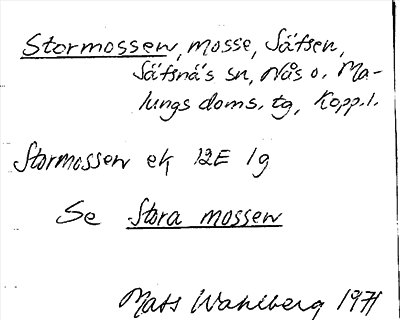 Stormossen, mosse, Säfsen,
Säfsnäs sn, Nås o. Ma-
lungs doms. tg, Kopp. l.
Stormossen ek 12E 1g
Se Stora mossen
Mats Wahlberg 1971